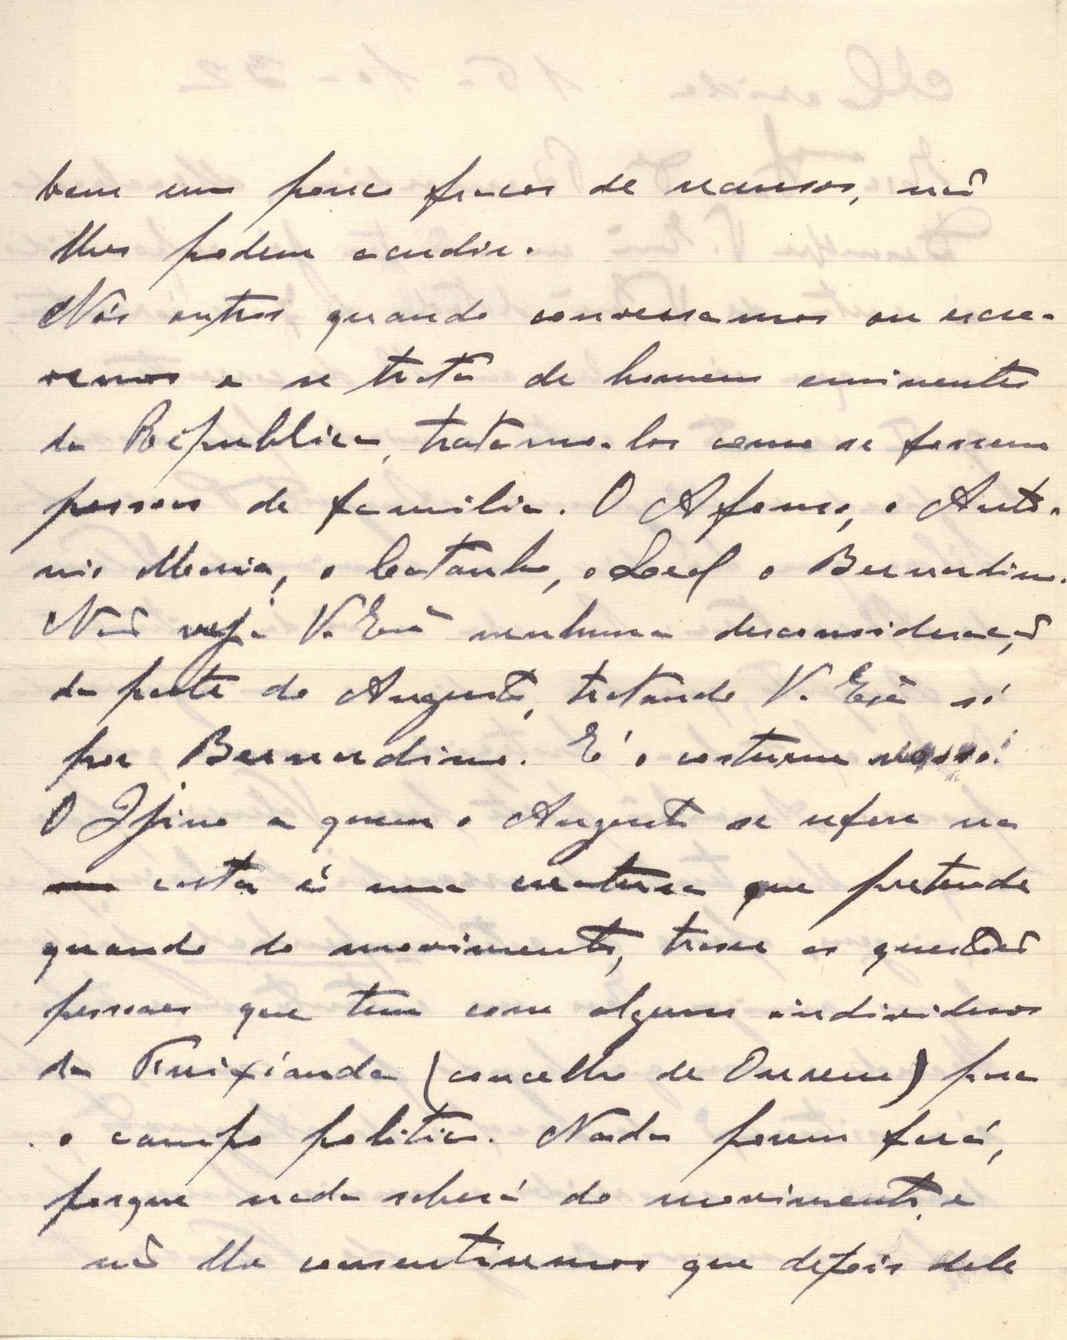 bem um pouco fracos de recursos, não
lhes podem acudir.
Nós outros quando conversamos ou escre-
vemos e se trata de homens eminentes
da Republica, tratamo-los como se fossem
pessoas de familia. O Afonso, o Antó-
nio Maria, o Catanho, o Leal o Bernardino.
Não veja V. Exã nenhuma desconsideração
da parte do Augusto, tratando V. Exã só
por Bernardino. E' o costume nosso.
O a quem o Augusto se refere na
carta é uma creatura que pretende
quando do movimento, trazer as questões
pessoaes que tem com alguns individuos
da Freixianda (concelho de Ourem) para
o campo politico. Nada porem fará,
porque nada saberá do movimento, e
não lhe consentiremos que depois dele